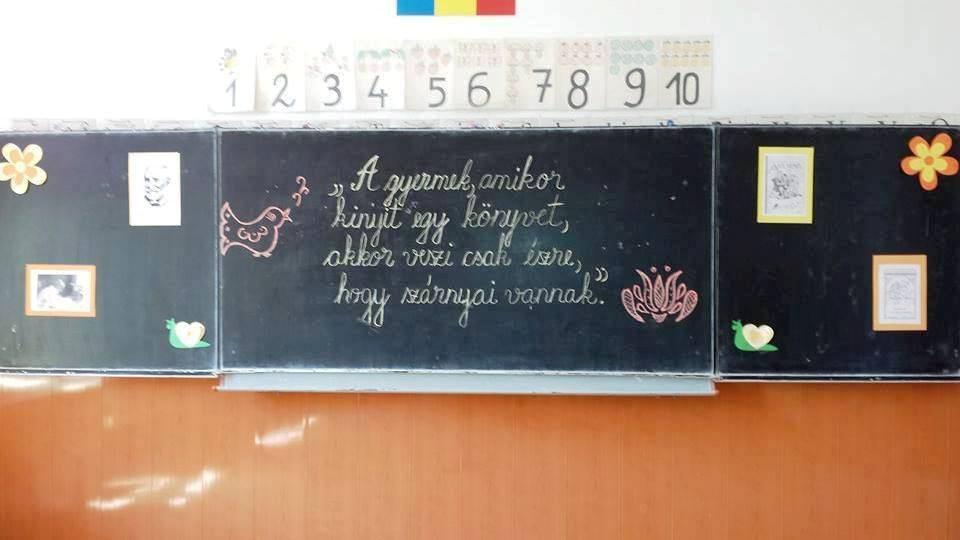 1 2 3 4 5 6 7 8 9 10
„A gyermek, amikor
kinyit egy könyvet,
akkor veszi csak észre,
hogy szárnyai vannak.”